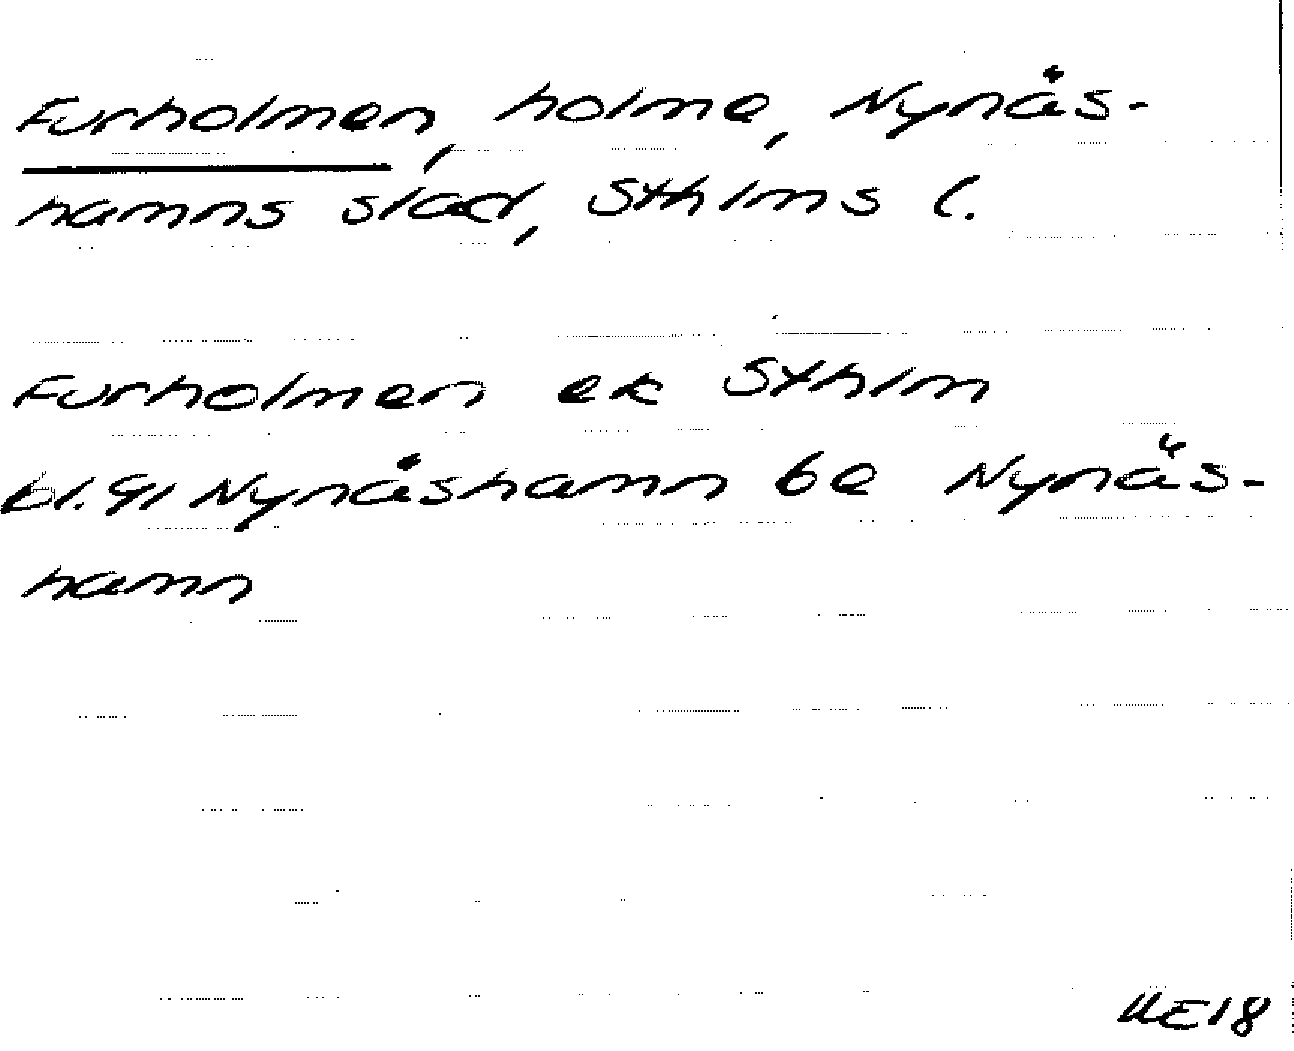 Furholmen, holme, Nynäs-
hamns stad, Sthlms l.
Furholmen ek Sthlm
bl. 91 Nynäshamn 6e Nynäs-
hamn
UE18